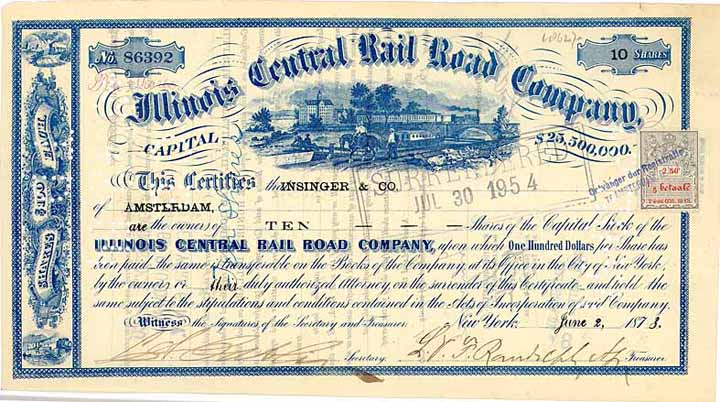 No. 86392
10 SHARES
Illinois Central Rail Road Company,
CAPITAL $25,500,000.
This Certifies that INSINGER & CO.
of AMSTERDAM,
are the owners of TEN Shares of the Capital Stock of the
ILLINOIS CENTRAL RAIL ROAD COMPANY, upon which One Hundred Dollars per Share has
been paid the same is transferable on the Books of the Company, at its Office in the City of New York,
by the owners or their duly authorized Attorney, on the surrender of this Certificate and held the
same subject to the stipulations and conditions contained in the Acts of Incorporation of said Company.
Witness the Signatures of the Secretary and Treasurer.
New York June 2, 1873.
Secretary.
L. V. F. Randolph
Treasurer
SURRENDERED
JUL 30 1954
Ontvanger der Registratie
AMSTERDAM
2.50
SHARES